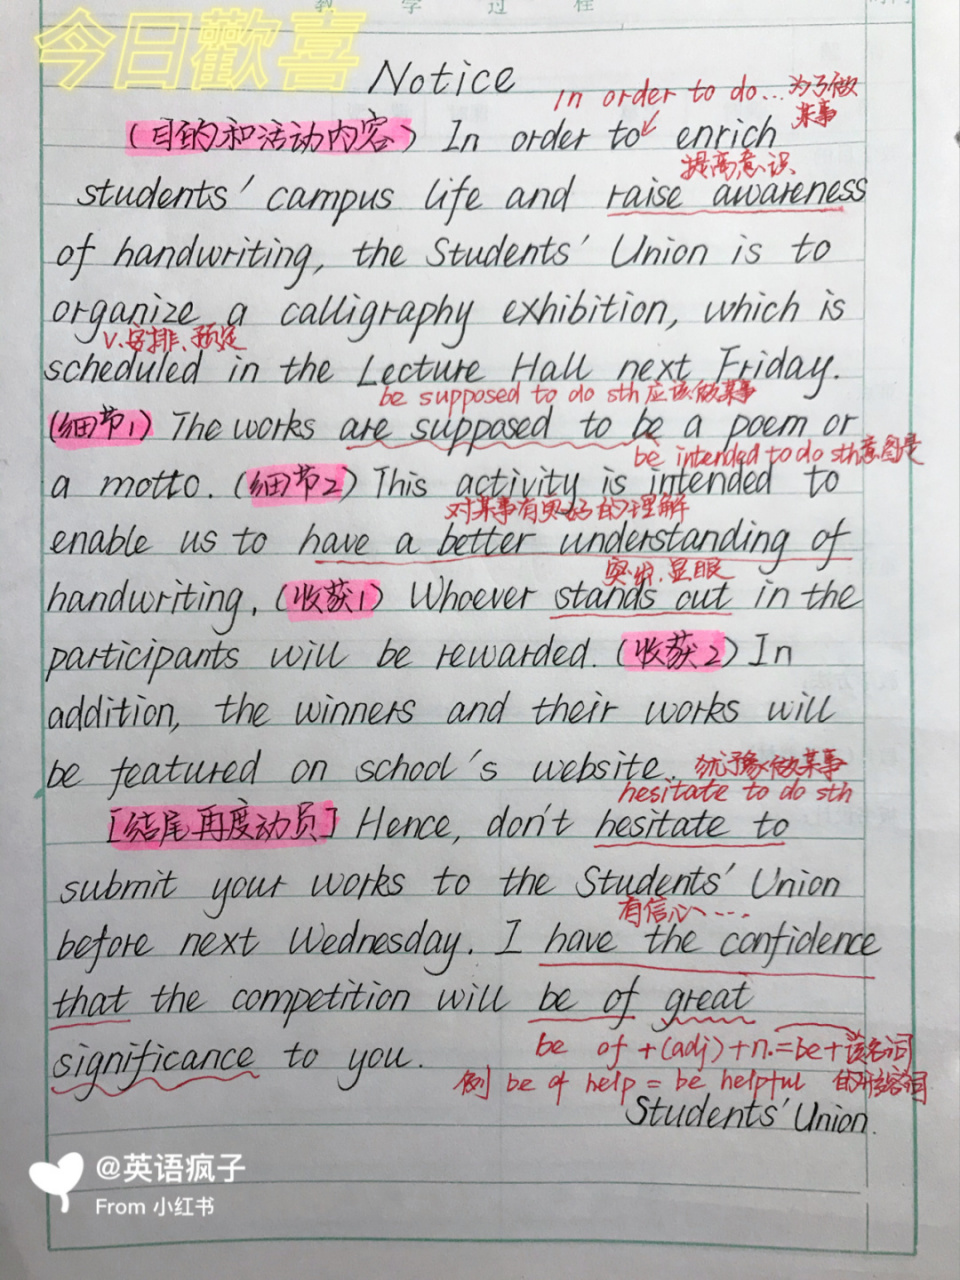 教 学 过 程
今日歡喜
Notice
in order to do... 为了做
某事
(目的和活动内容) In order to enrich
提高意识
students' campus life and raise awareness
of handwriting, the Students' Union is to
organize a calligraphy exhibition, which is
v.安排、预定
scheduled in the Lecture Hall next Friday.
be supposed to do sth 应该做某事
(细节1) The works are supposed to be a poem or
be intended to do sth意图是
a motto. (细节2) This activity is intended to
对某事有更好的理解
enable us to have a better understanding of
突出、显眼
handwriting. (收获1) Whoever stands out in the
participants will be rewarded. (收获2) In
addition, the winners and their works will
be featured on school's website.
犹豫做某事
hesitate to do sth
[结尾再度动员] Hence, don't hesitate to
submit your works to the Students' Union
有信心...
before next Wednesday. I have the confidence
that the competition will be of great
significance to you.
be of +(adj)+n.=be+该名词
例 be of help = be helpful 的形容词
Students' Union.
@英语疯子
From 小红书